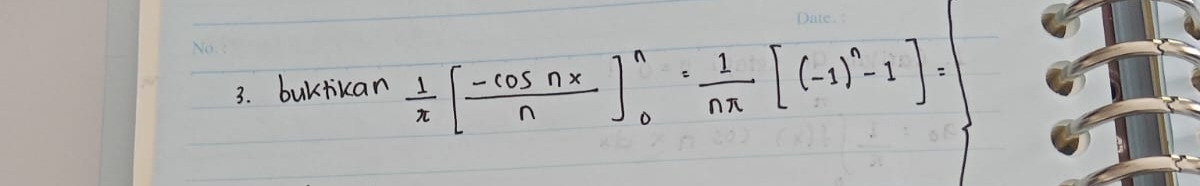 No. :
Date. :
3. buktikan 1/π [ -cos nx / n ]₀ⁿ = 1/nπ [ (-1)ⁿ - 1 ] = {